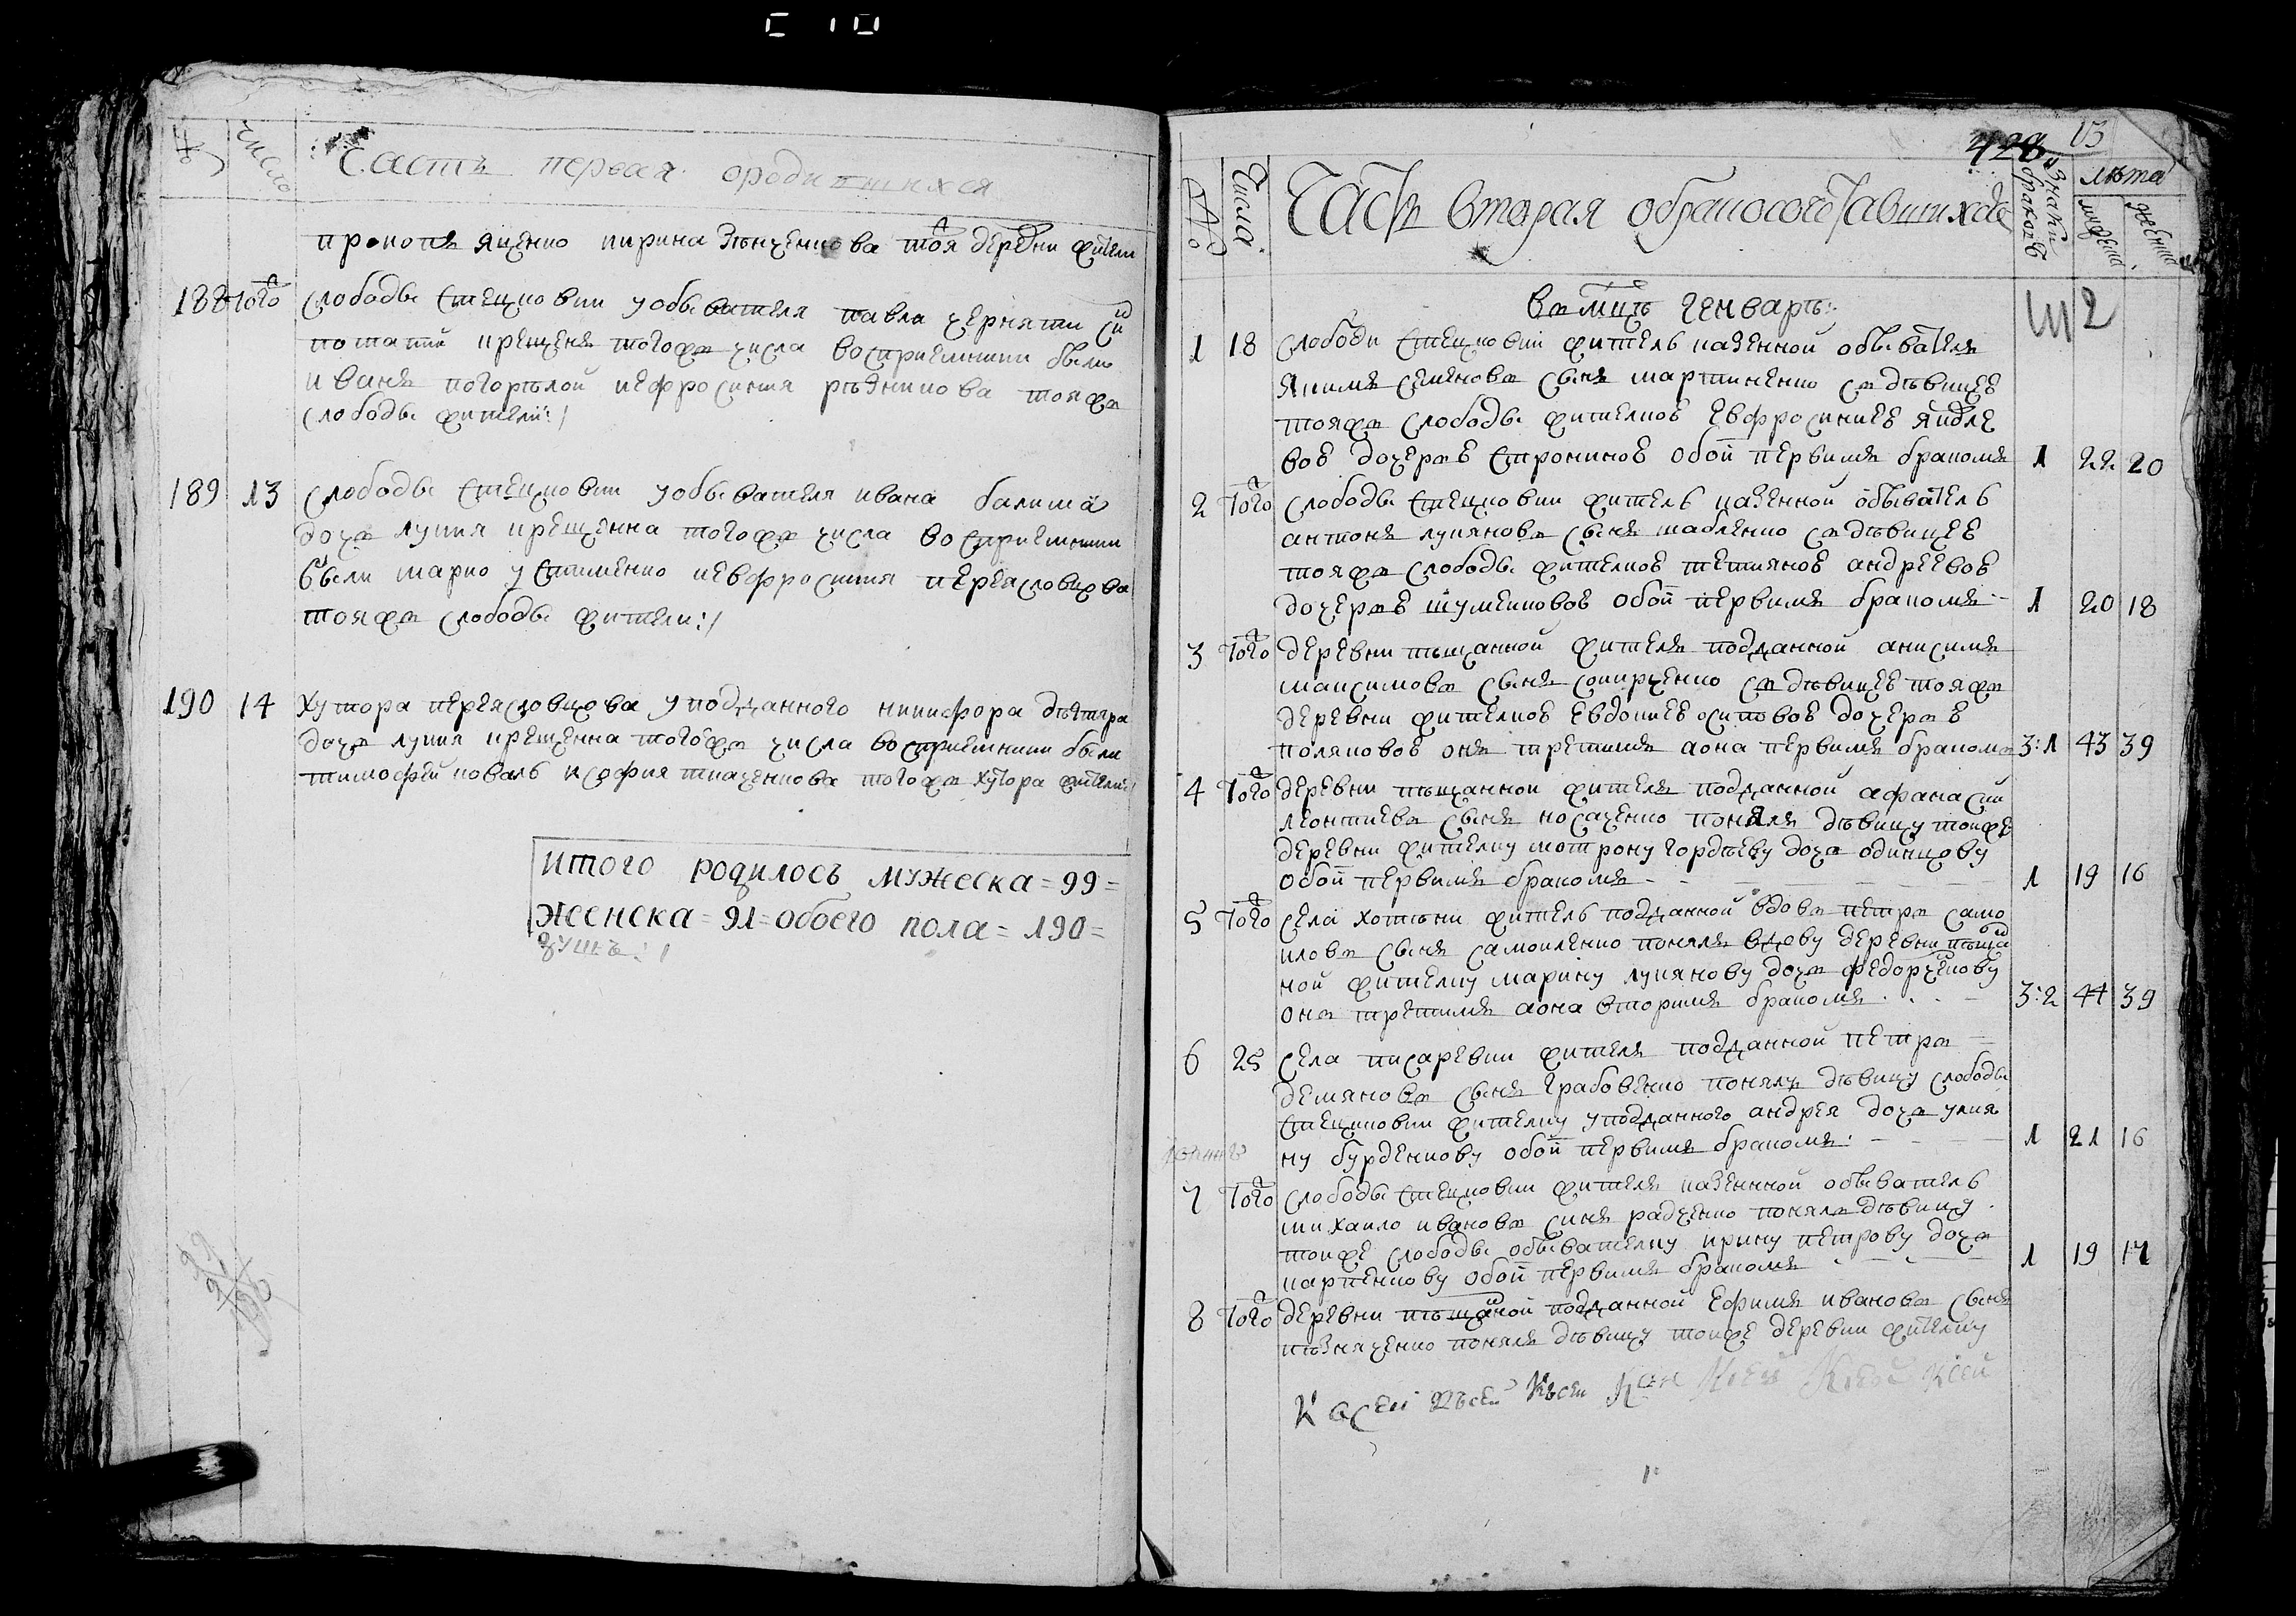 № Число Часть первая ородившихся
прокопъ яценко ирина зѣнченкова тоя деревни жители
188 Того слободы Стецковки у обывателя павла черняти сн
потапий крещенъ тогожъ числа восприемники были
иванъ погорѣлой иефросиния рѣзникова тояжъ
слободы жители:/
189 13 слободы Стецковки у обывателя ивана
дочь лукия крещенна тогожъ числа восприемники
были марко устименко иевфросиния переясловцова
тояжъ слободы жители:/
190 14 Хутора переясловцова у подданного никифора дѣгтяра
дочь лукия крещенна тогожъ числа восприемники были
тимофей коваль исофия ткаченкова тогожъ хутора жители:/
итого родилось мужеска = 99 =
женска = 91 = обоего пола = 190 =
душъ:/
99
91
190
428 13
№ Числа Часть вторая обракосочетавшихся Знаки браковъ лѣта мужеска женска
Въ мцѣ Генварѣ:
1 18 слободи Стецковки житель казенной обывателя
Якимъ семеновъ сынъ мартиненко съ дѣвицею
тояжъ слободы жителкою Евфросиниею Яковле
вою дочерью Строкиною обои первимъ бракомъ 1 22 20
2 Того слободы Стецковки житель казенной обыватель
антонъ лукяновъ сынъ шабленко съ дѣвицею
тояжъ слободы жителкою тетяною андреевою
дочерью шумейковою обои первимъ бракомъ 1 20 18
3 Того деревни пѣщанной жителя подданной анисимъ
максимовъ сынъ сокирченко съ дѣвицею тояжъ
деревни жителкою Евдокиею осиповою дочерью
поляковою онъ третимъ аона первимъ бракомъ 3:1 43 39
4 Того деревни пѣщанной жителя подданной афанасий
леонтиевъ сынъ носаченко понялъ дѣвицу тоижъ
деревни жителку мотрону гордѣеву дочь одинцову
обои первимъ бракомъ 1 19 16
5 Того села хотѣни житель подданной вдовъ петръ само
иловъ сынъ самоиленко понялъ вдову деревни пѣща
ной жителку марину лукянову дочь федорченкову
онъ третимъ аона вторимъ бракомъ 3:2 44 39
6 25 села писаревки жителя подданной петръ
демяновъ сынъ грабовенко понялъ дѣвицу слободы
Стецковки жителку у подданного андрея дочь улия
ну бурденкову обои первимъ бракомъ: 1 21 16
7 Того слободы Стецковки жителя казенной обыватель
михаило ивановъ синъ радченко понялъ дѣвицу
тоижъ слободы обывателку ирину петрову дочь
карпенкову обои первимъ бракомъ 1 19 17
8 Того деревни пѣщаной подданной Ефимъ ивановъ сынъ
пѣзняченко понялъ дѣвицу тоиже деревни жителку